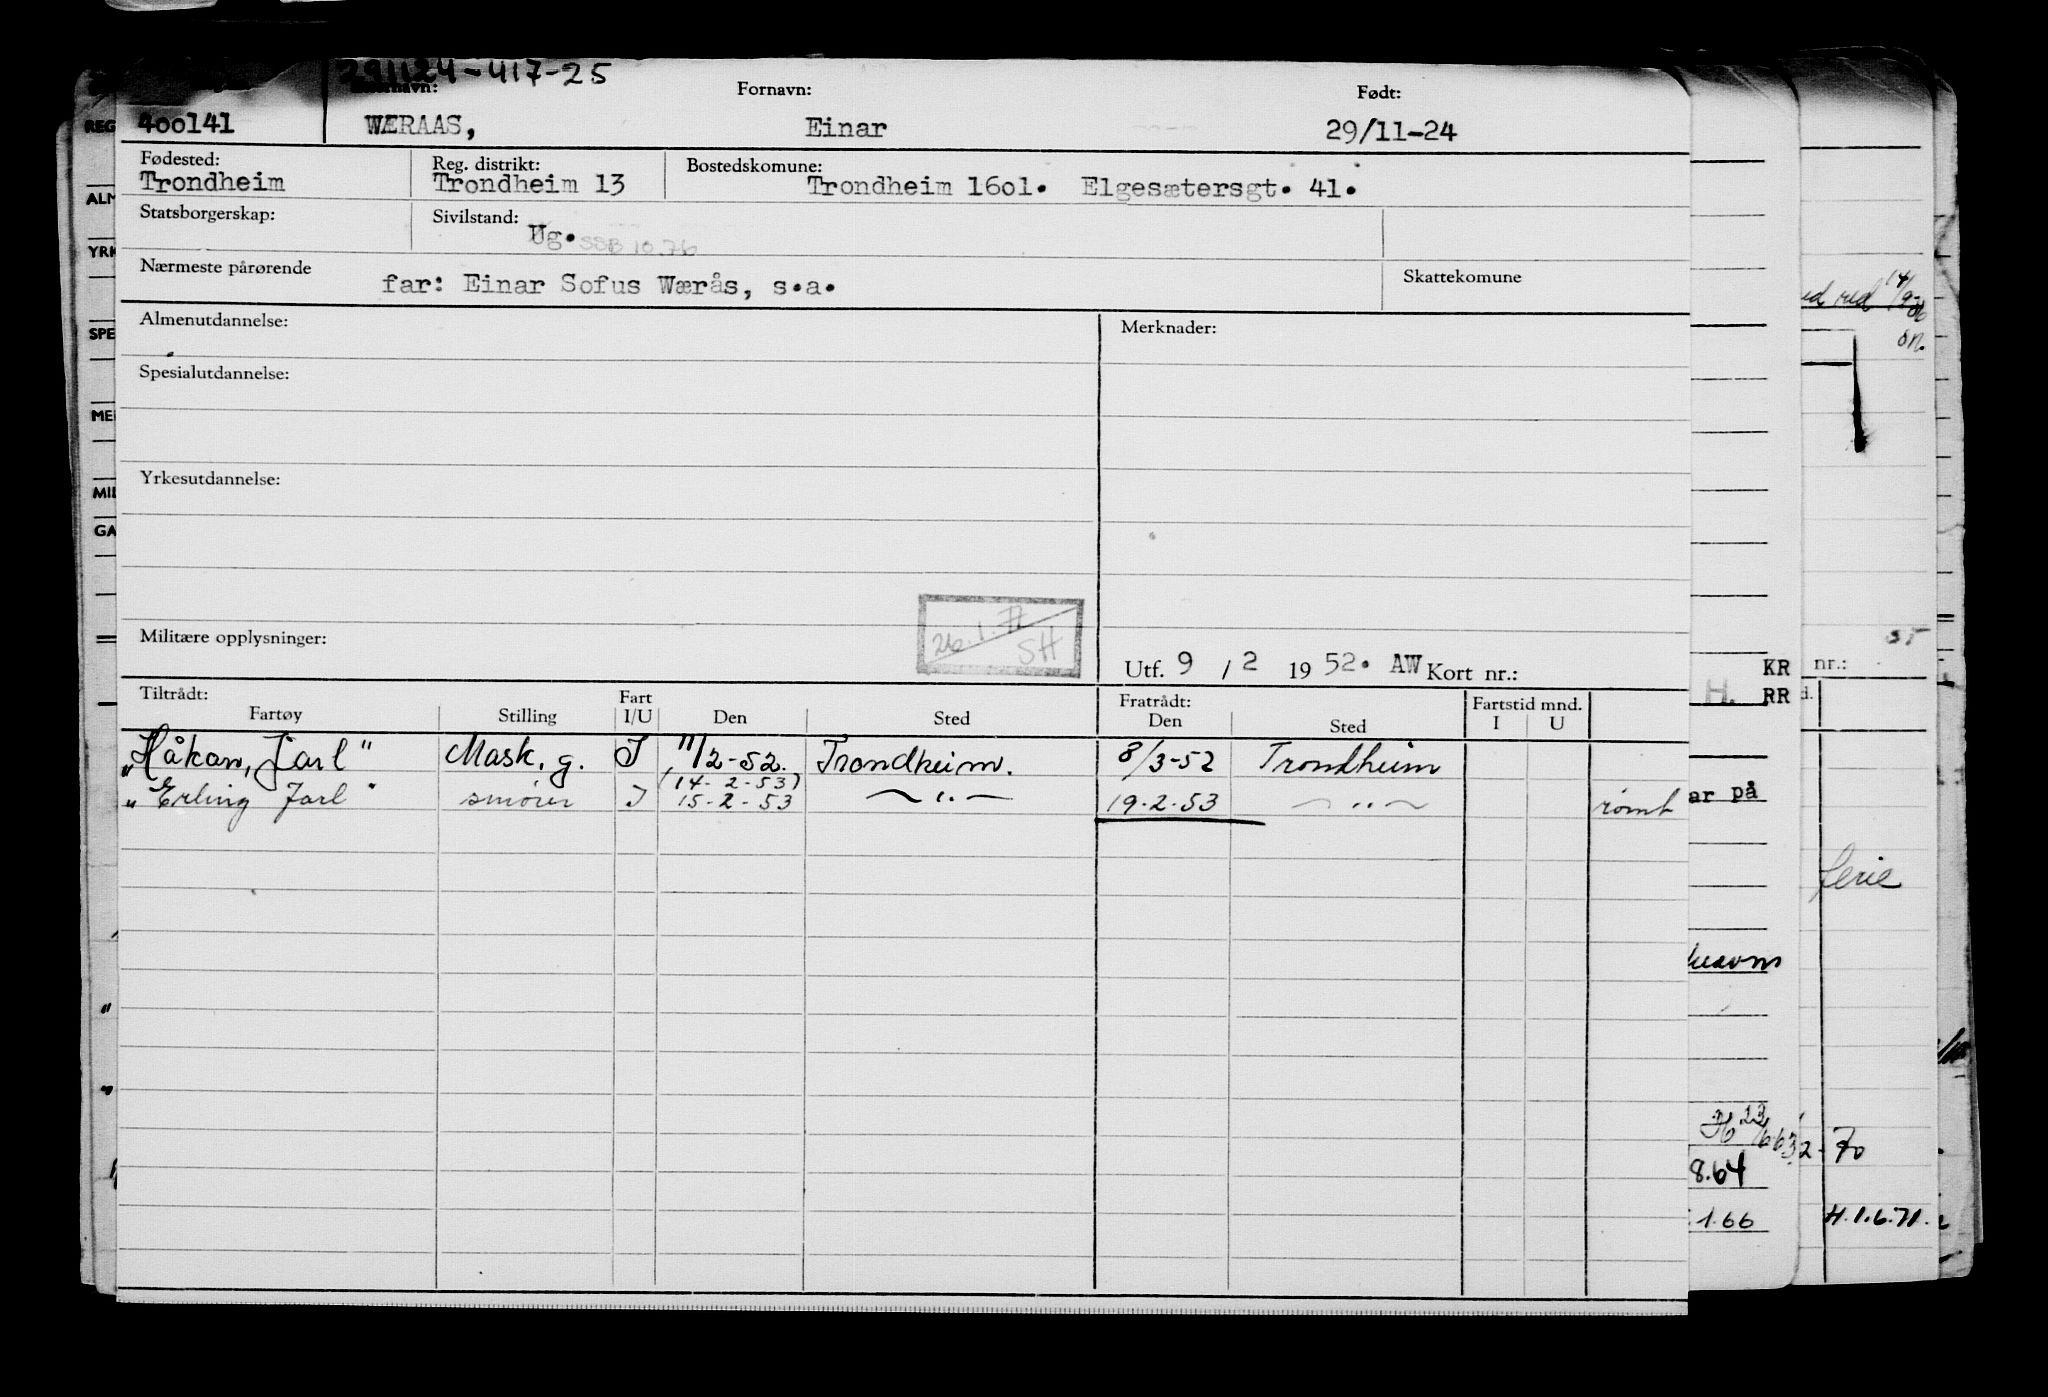 291124-417-25
Fornavn: Født:
400141 WÆRAAS, Einar 29/11-24
Fødested: Reg. distrikt: Bostedskomune:
Trondheim Trondheim 13 Trondheim 16o1. Elgesætersgt. 41.
Statsborgerskap: Sivilstand:
Ug. SSB 10.76
Nærmeste pårørende Skattekomune
far: Einar Sofus Wærås, s.a.
Almenutdannelse: Merknader:
Spesialutdannelse:
Yrkesutdannelse:
26.1.77 SH
Militære opplysninger:
Utf. 9 / 2 19 52. AW Kort nr.:
Tiltrådt: Fratrådt:
Fartøy Stilling Fart I/U Den Sted Den Sted Fartstid mnd. I U
"Håkon Jarl" Mask. g. I 11/2-52. Trondheim. 8/3-52 Trondheim
(14-2-53)
"Erling Jarl" smører I 15-2-53 — " — 19.2.53 — " — rømt
REG
ALM
YRK
SPE
MEI
MIL
GA
KR
H. RR
ar på
8.64
1.66
nr.:
ferie
70
H.1.6.71.